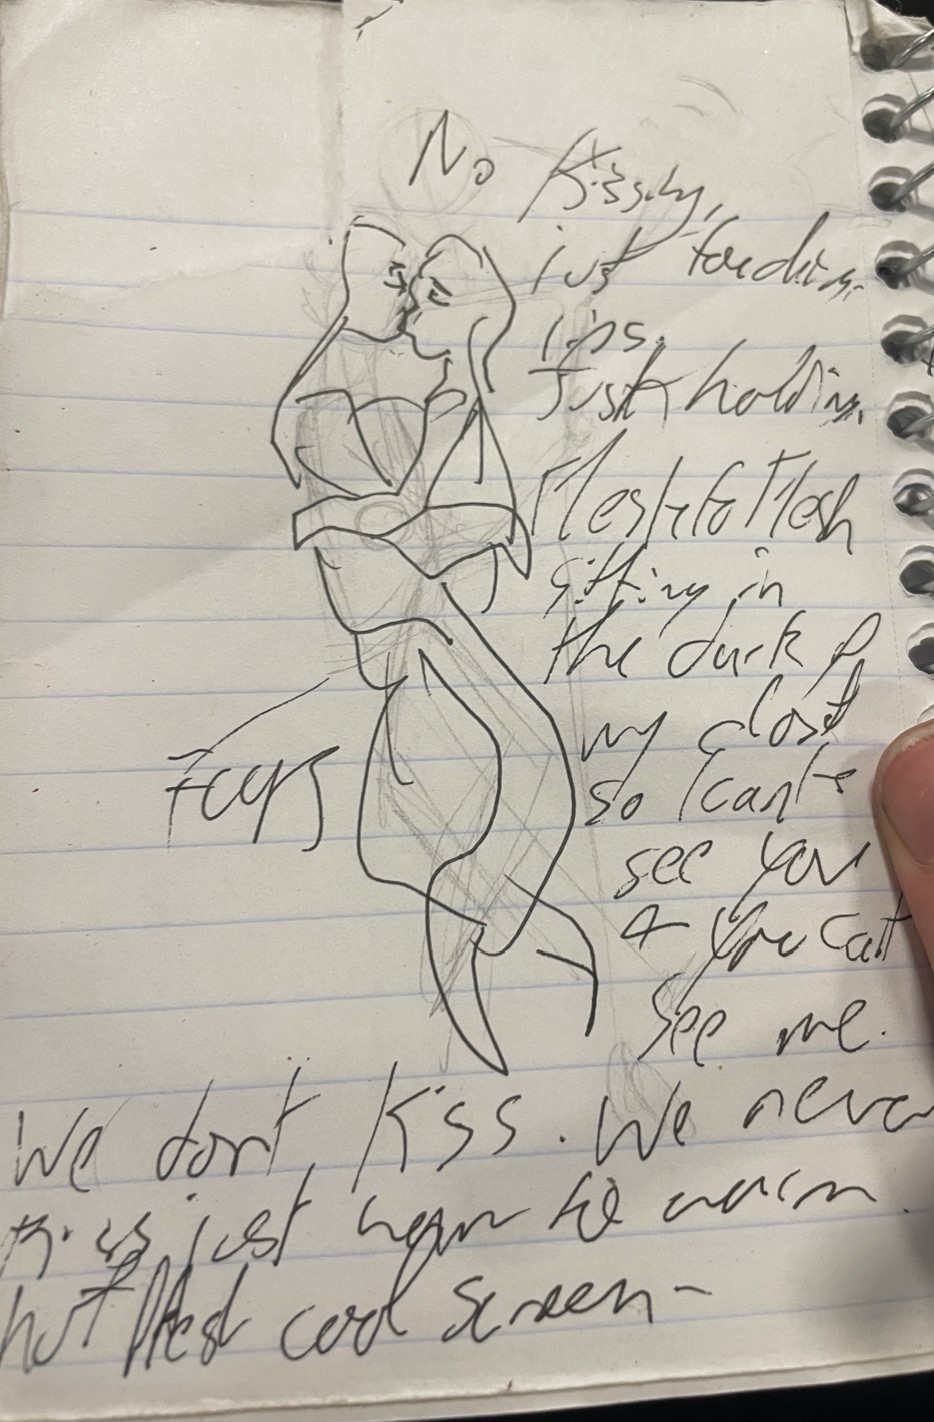 No Kissing,
just touching
lips.
Just holding
Flesh to Flesh
sitting in
the dark
my closet
so I can't
see you
& you cant
see me.
Fears
We dont Kiss. We never
Kiss just warm to warm
hot flesh cool screen-